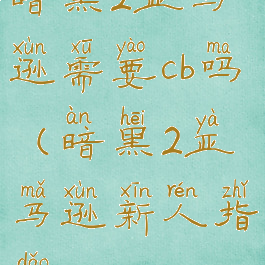 暗黑2亚马
xùn xū yào ma
逊需要cb吗
àn hēi yà
(暗黑2亚
mǎ xùn xīn rén zhǐ
马逊新人指
dǎo